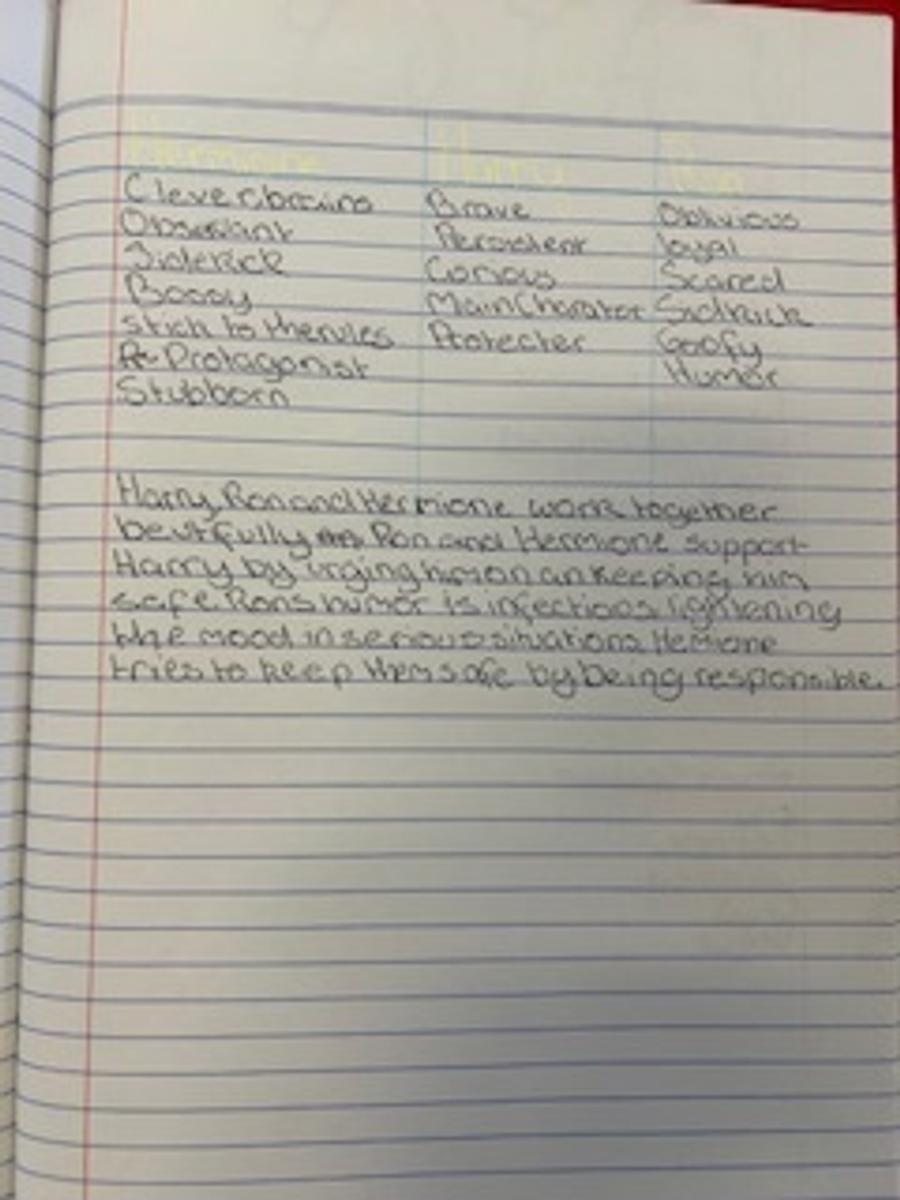 Hermione Harry Ron
Clever brains Brave Oblivious
Observant Persistent loyal
Siderick Corious Scared
Bossy Main Charater Sidkick
stick to therules Protecter Goofy
Protagonist Humor
Stubborn
Harry, Ron and Hermione work together
beutifully Ron and Hermione support
Harry by urging him on an keeping him
safe. Rons humor is infectious, lightening
the mood in serious situations. Hemione
tries to keep them safe by being responsible.